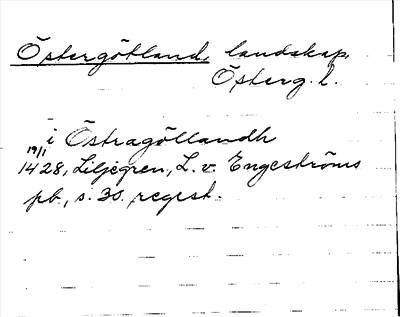 Östergötland, landskap,
Österg. l.
i Östragöllandh
19/1
1428, Liljegren, L. v. Engeströms
pb., s. 30. regest.